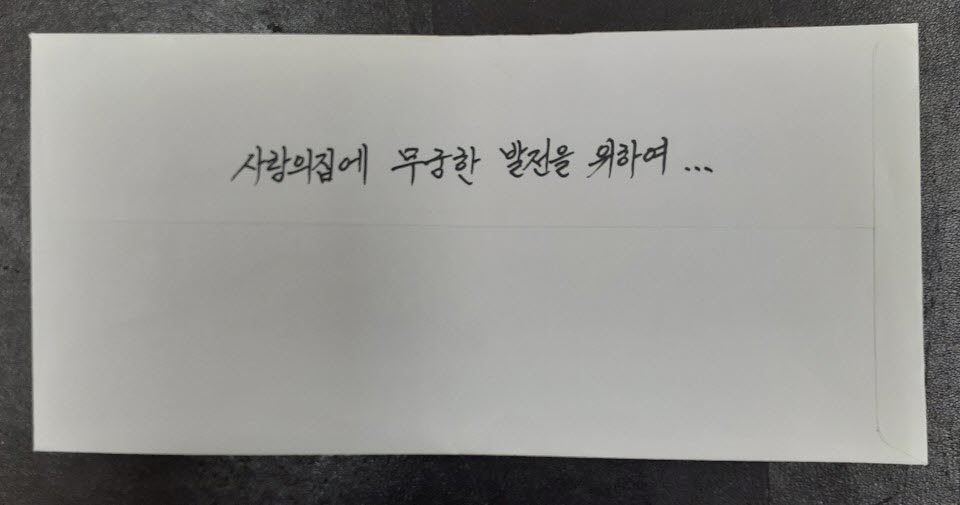 사랑의집에 무궁한 발전을 위하여...